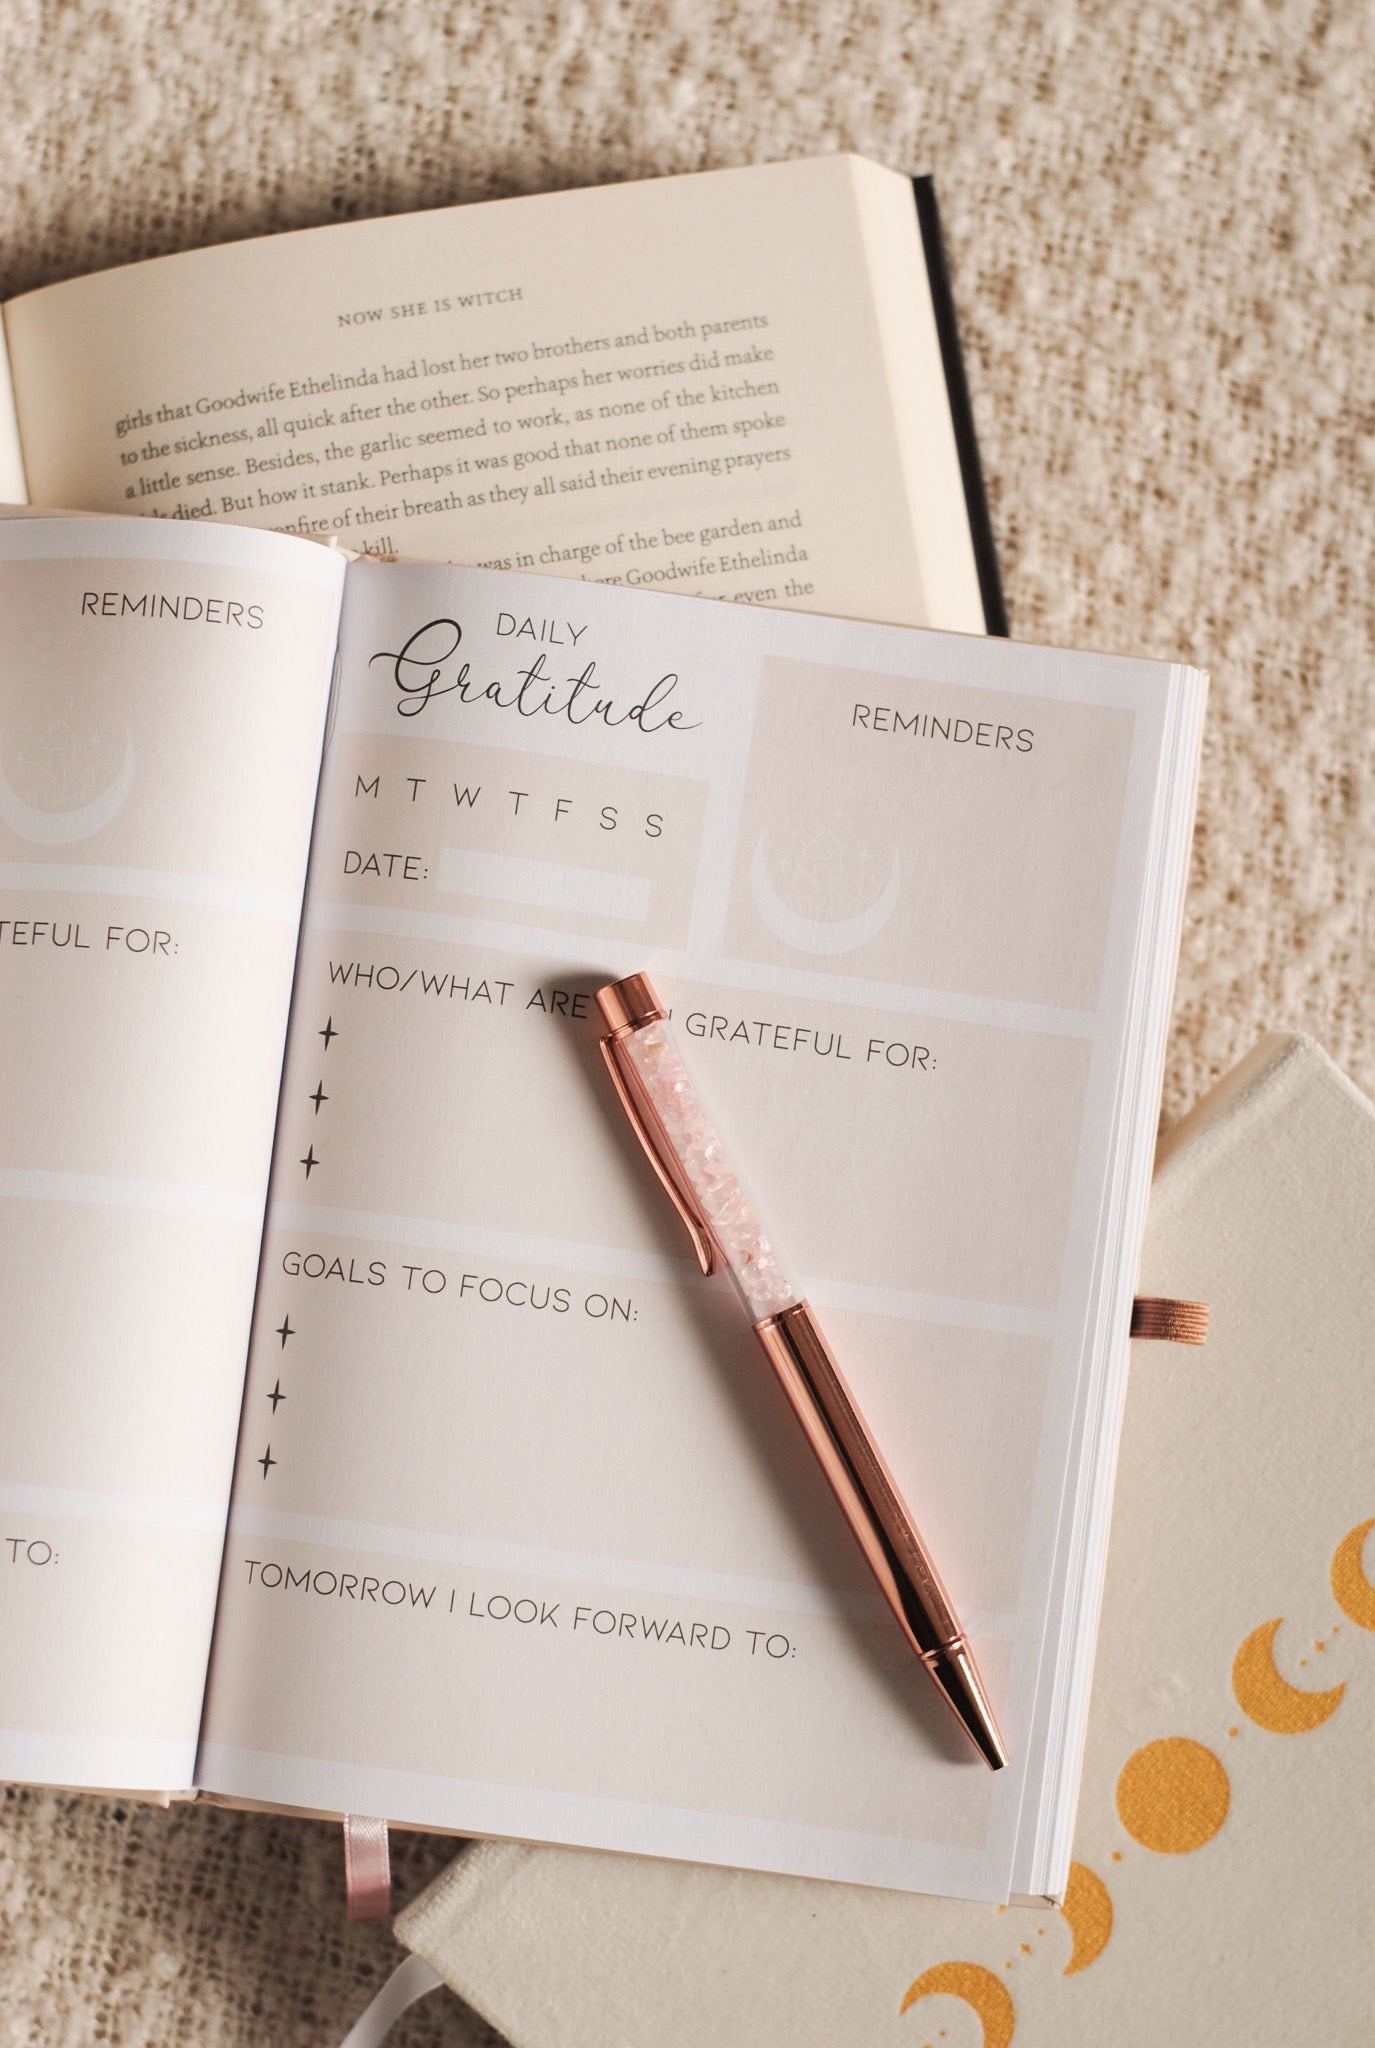 NOW SHE IS WITCH
girls that Goodwife Ethelinda had lost her two brothers and both parents
to the sickness, all quick after the other. So perhaps her worries did make
a little sense. Besides, the garlic seemed to work, as none of the kitchen
died. But how it stank. Perhaps it was good that none of them spoke
of their breath as they all said their evening prayers
kill.
was in charge of the bee garden and
Goodwife Ethelinda
even the
REMINDERS
FOR:
TO:
DAILY
Gratitude
REMINDERS
M T W T F S S
DATE:
WHO/WHAT ARE GRATEFUL FOR:
GOALS TO FOCUS ON:
TOMORROW I LOOK FORWARD TO: